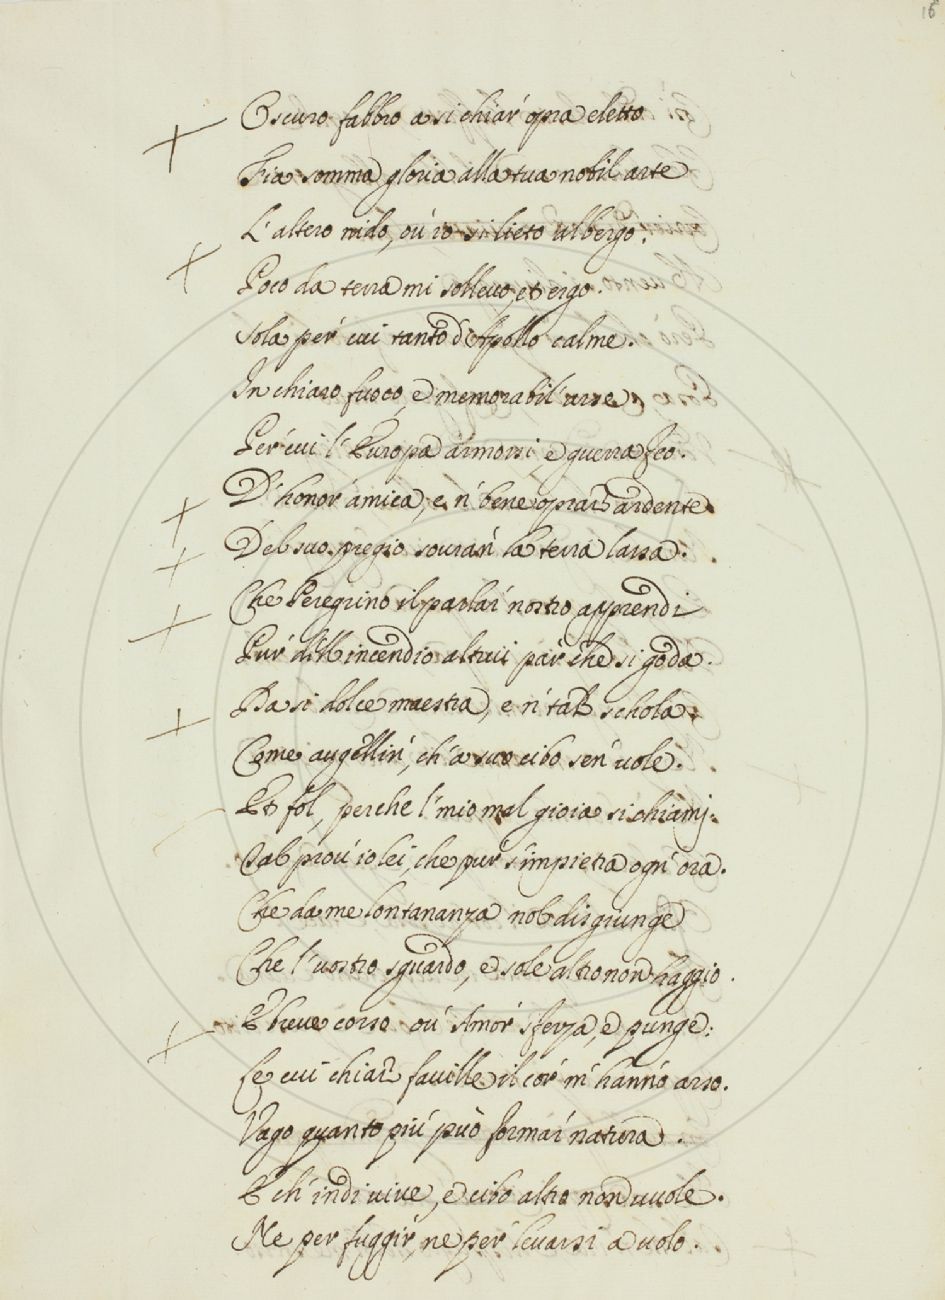 16
Oscuro fabbro a si chiar' opra eletto
Fia somma gloria alla tua nobil arte
L'altero nido, ou' io si lieto albergo.
Poco da terra mi solleuo, et ergo.
Sola per' cui tanto d'Apollo calme.
In chiaro fuoco, e memorabil' arse
Per' cui l'Europa armossi, e guerra feo.
D'honor' amica, e n' bene oprar' ardente
Del suo pregio souran' la terra lassa.
Che Peregrino il parlar' nostro apprendi
Pur' dell'incendio altrui par' che si goda.
Da si dolce maestra, e n' tal schola
Come augellin', ch' a suo cibo sen' uole.
Et fol, perche l' mio mal gioia si chiami.
Tal prou' io lei, che pur s'impietra ogn' ora.
Che da me lontananza nol disgiunge
Che l' uostro sguardo, e sole altro non haggio.
E breue corso ou' Amor' sferza, e punge:
Le cui chiare fauille il cor' m' hanno arso.
Vago quanto piu' può formar' natura.
E ch' indi uiue, e cibo altro non uuole.
Ne per fuggir, ne per' leuarsi a uolo.